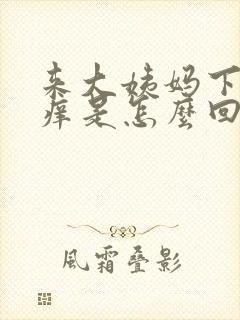 来大姨妈下
痒是怎麼回
風霜叠影